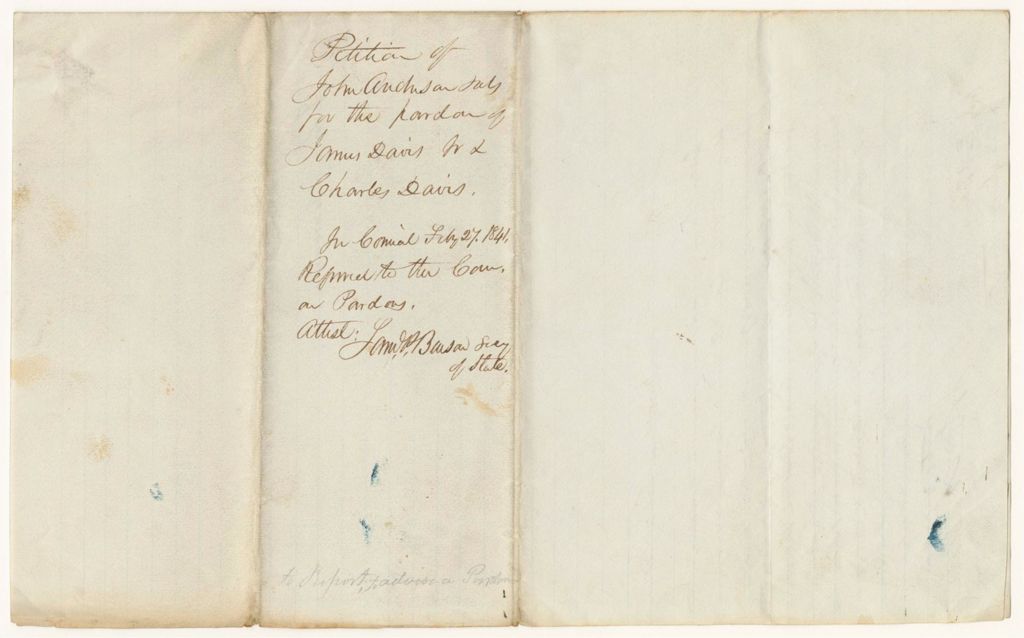 Petition of
John Anderson & als
for the pardon of
James Davis Jr &
Charles Davis.
In Council Feby 27. 1841.
Referred to the Com.
on Pardons.
Attest:
Saml P. Benson Secy
of State.
to Report, & advise a Pardon